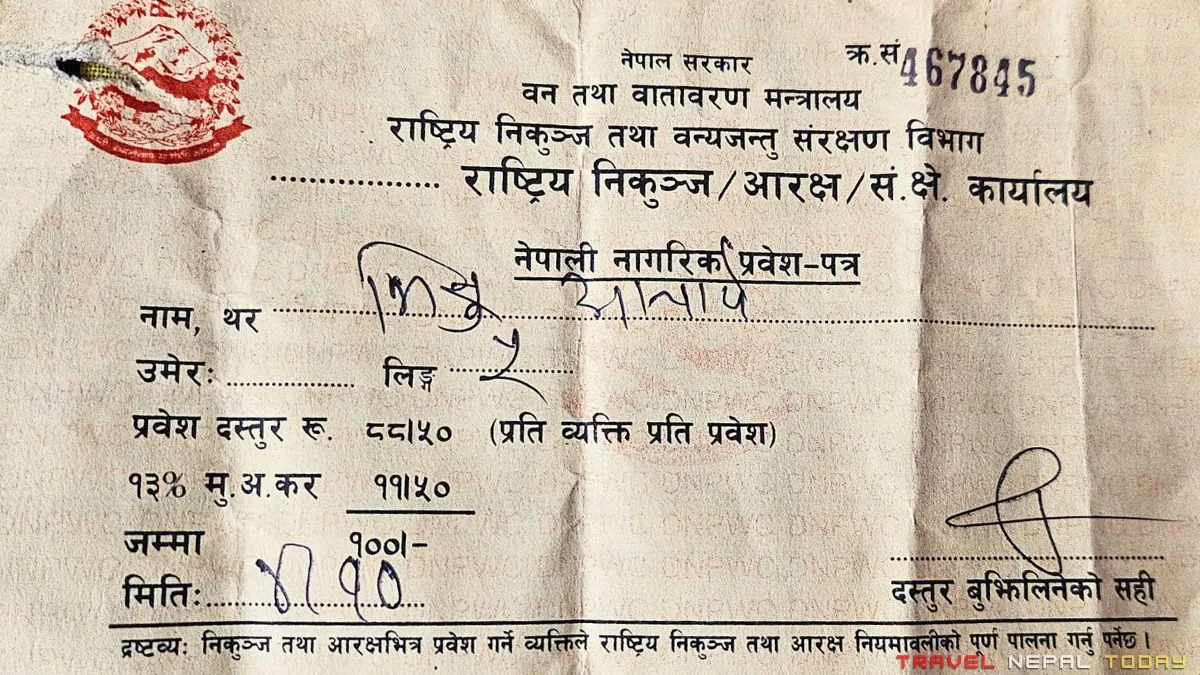 नेपाल सरकार
क्र.सं 467845
वन तथा वातावरण मन्त्रालय
राष्ट्रिय निकुञ्ज तथा वन्यजन्तु संरक्षण विभाग
.................. राष्ट्रिय निकुञ्ज/आरक्ष/सं.क्षे. कार्यालय
नेपाली नागरिक प्रवेश-पत्र
नाम, थर
उमेरः ................ लिङ्ग
प्रवेश दस्तुर रू. ८८।५० (प्रति व्यक्ति प्रति प्रवेश)
१३% मु.अ.कर ११।५०
जम्मा १००।-
मितिः
दस्तुर बुझिलिनेको सही
द्रष्टव्यः निकुञ्ज तथा आरक्षभित्र प्रवेश गर्ने व्यक्तिले राष्ट्रिय निकुञ्ज तथा आरक्ष नियमावलीको पूर्ण पालना गर्नु पर्नेछ।
TRAVEL NEPAL TODAY